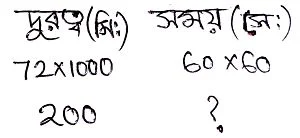 দুরত্ব (মিঃ) সময় (সেঃ)
72x1000 60x60
200 ?